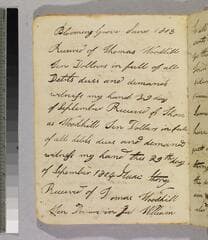 Blooming Grove June 1803
Receivd of Thomas Woodhull
Ten Dollars in full of all
Debts dues and demands
witness my hand 22 day
of September Receivd of Thom
as Woodhull Ten Dollars in full
of all debts dues and demands
witness my hand this 22 day
of September 1804
Receivd of Tomas Woodhull
William